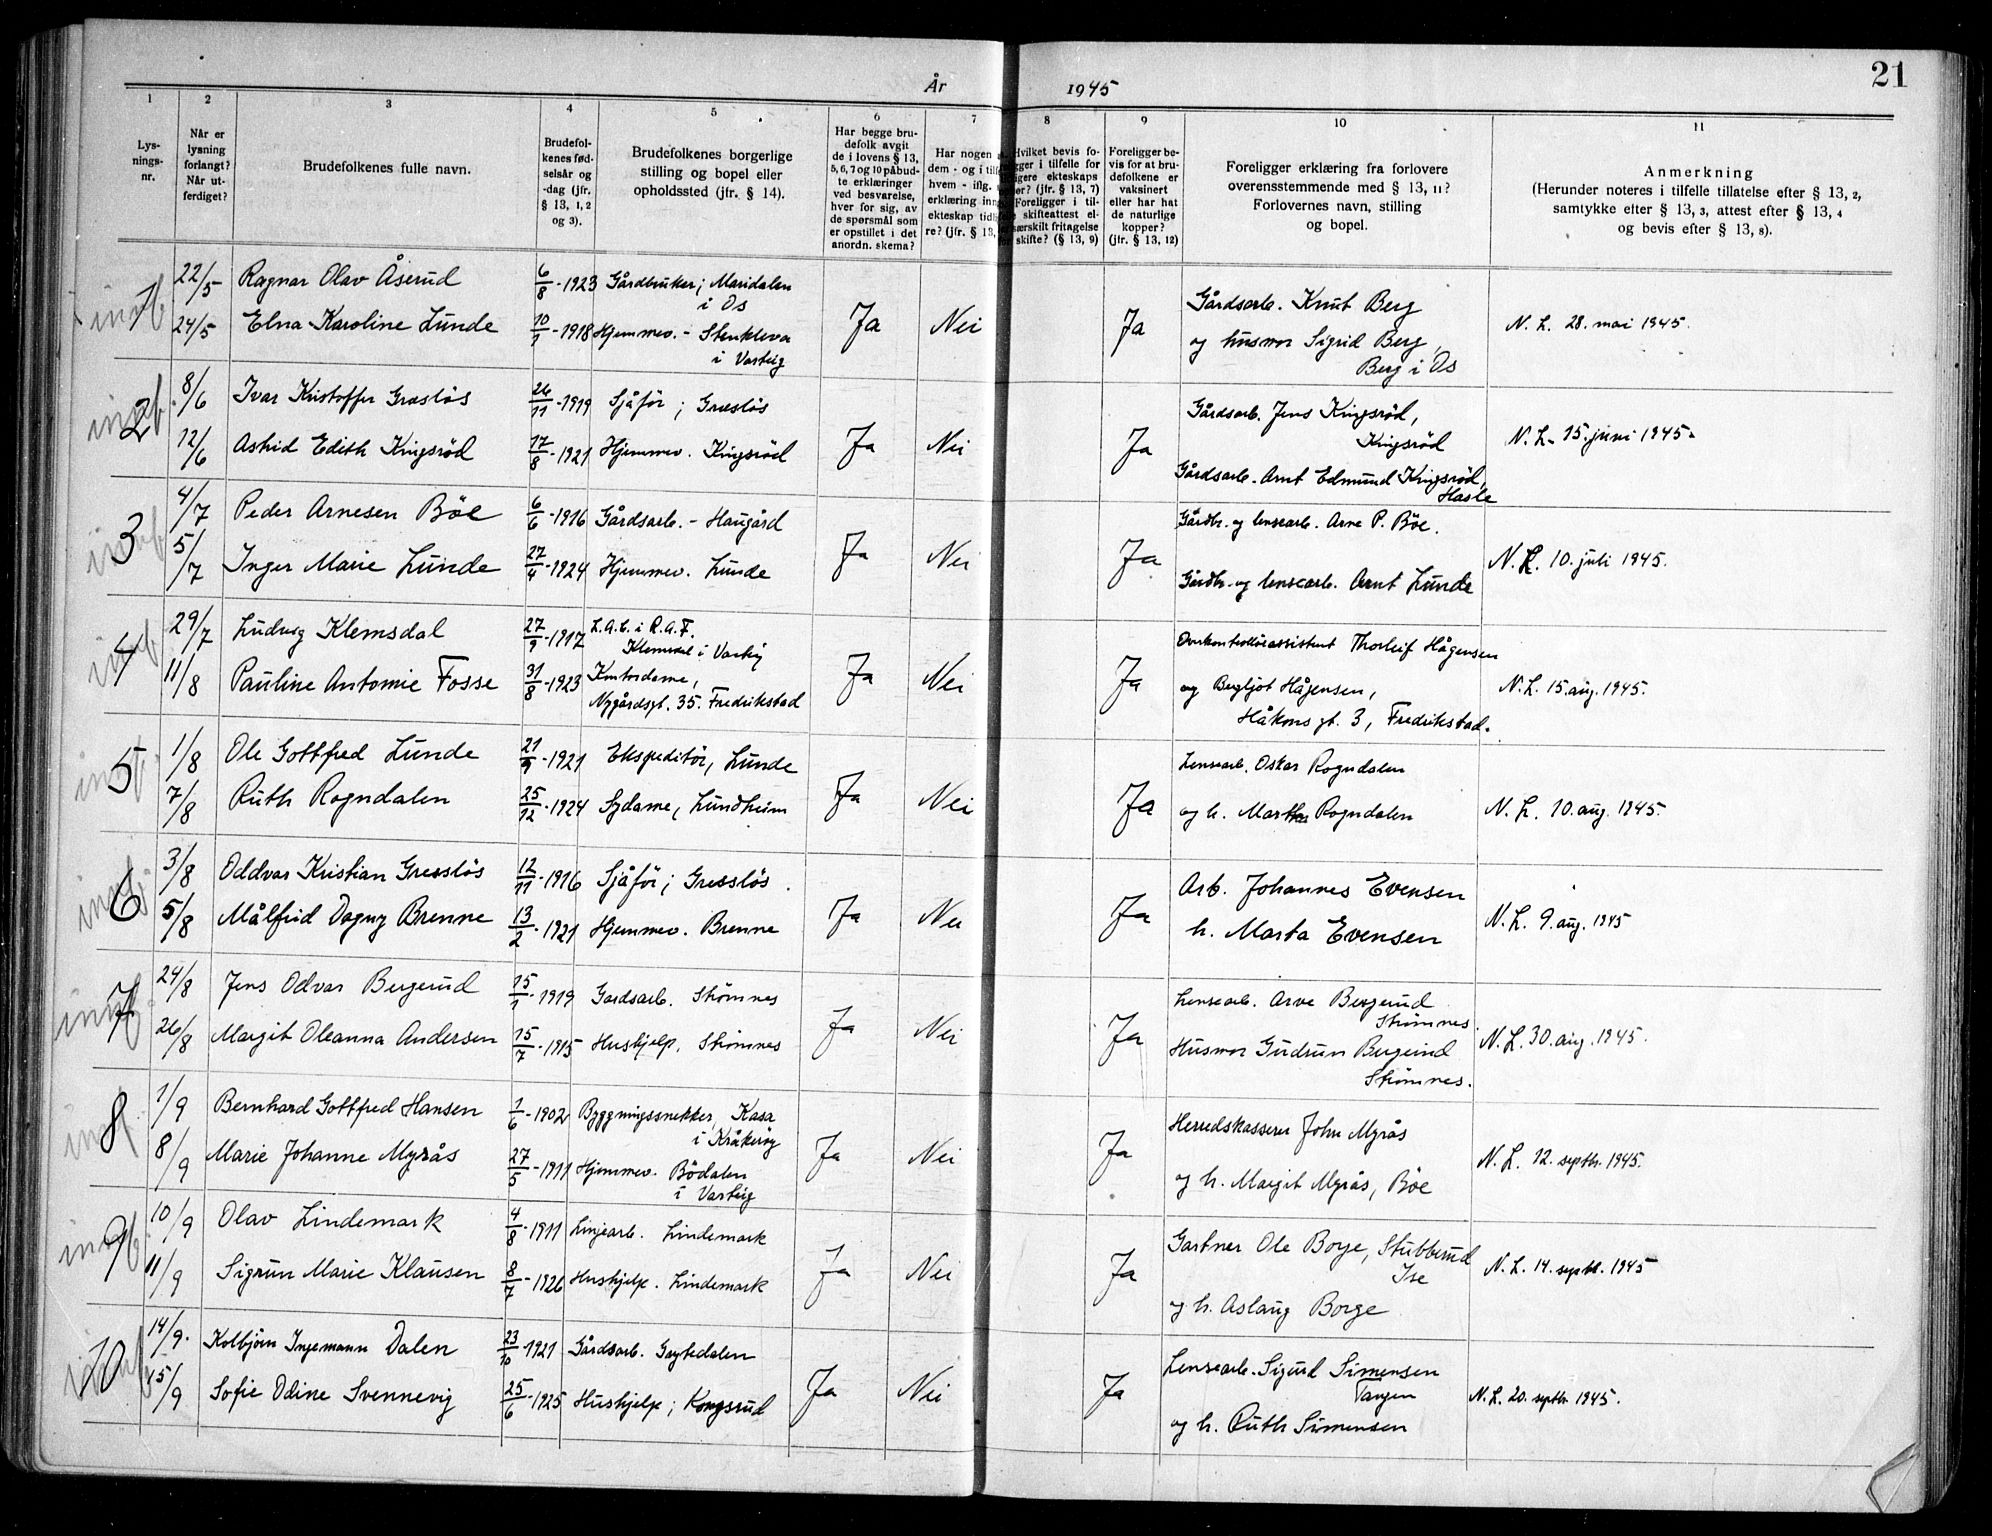 21
År 1945
1 2 3 4 5 6 7 8 9 10 11
Lys-
nings-
nr.
Når er
lysning
forlangt?
Når ut-
ferdiget?
Brudefolkenes fulle navn.
Brudefol-
kenes fød-
selsår og
-dag (jfr.
§ 13, 1, 2
og 3).
Brudefolkenes borgerlige
stilling og bopel eller
opholdssted (jfr. § 14).
Har begge bru-
defolk avgit
de i lovens § 13,
5, 6, 7 og 10 påbud-
te erklæringer
ved besvarelse,
hver for sig, av
de spørsmål som
er opstillet i det
anordn. skema?
Har nogen
dem - og i tilf
hvem - iflg.
erklæring inng
ekteskap tidl
re? (jfr. § 13,
Hvilket bevis fo-
gger i tilfelle for
igere ekteskaps
er? (jfr. § 13, 7)
Foreligger i til-
e skifteattest el-
særskilt fritagelse
skifte? (§ 13, 9)
Foreligger be-
vis for at bru-
defolkene er
vaksinert
eller har hat
de naturlige
kopper?
(jfr. § 13, 12)
Foreligger erklæring fra forlovere
overensstemmende med § 13, 11?
Forlovernes navn, stilling
og bopel.
Anmerkning
(Herunder noteres i tilfelle tillatelse efter § 13, 2,
samtykke efter § 13, 3, attest efter § 13, 4
og bevis efter § 13, 8).
1 22/5 Ragnar Olav Åserud 6/8-1923 Gårdbruker; Maridalen
i Os
24/5 Elna Karoline Lunde 10/1-1918 Hjemmev. - Stenkleva
i Varteig
Ja Nei Ja
Gårdsarb. Knut Berg
og husmor Sigrid Berg,
Berg i Os
N. L. 28. mai 1945.
2 8/6 Ivar Kristoffer Gresløs 26/11-1919 Sjåför; Gresløs
12/6 Astrid Edith Kingsröd 17/8-1921 Hjemmev. Kingsröd
Ja Nei Ja
Gårdsarb. Jens Kingsröd,
Kingsröd
Gårdsarb. Arnt Edmund Kingsröd,
Hasle
N. L. 15. juni 1945.
3 4/7 Peder Arnesen Böe 6/6-1916 Gårdsarb. - Haugård
5/7 Inger Marie Lunde 27/4-1924 Hjemmev. Lunde
Ja Nei Ja
Gårdbr. og lensearb. Arne P. Böe.
Gårdbr. og lensearb. Arnt Lunde
N. L. 10. juli 1945.
4 29/7 Ludvig Klemsdal 27/9-1917 L.A.C. i R.A.F.
Klemsdal i Varteig
11/8 Pauline Antonie Fosse 31/8-1923 Kontordame,
Nygårdsgt. 35. Fredrikstad
Ja Nei Ja
Overkontrollörassistent Thorleif Hågensen
og Bergljot Hågensen,
Håkons gt. 3, Fredrikstad.
N. L. 15. aug. 1945.
5 1/8 Ole Gottfred Lunde 21/9-1921 Ekspeditör, Lunde
7/8 Ruth Rogndalen 25/12-1924 Sydame, Lundheim
Ja Nei Ja
Lensearb. Oskar Rogndalen
og h. Martha Rogndalen
N. L. 10. aug. 1945.
6 3/8 Oddvar Kristian Gresslös 12/11-1916 Sjåför; Gresslös.
5/8 Målfrid Dagny Brenne 13/2-1921 Hjemmev. Brenne
Ja Nei Ja
Arb. Johannes Evensen
h. Marta Evensen
N. L. 9. aug. 1945
7 24/8 Jens Odvar Bergerud 15/1-1919 Gardsarb. Strömnes
26/8 Margit Oleanna Andersen 15/7-1915 Hushjelp, Strömnes
Ja Nei Ja
Lensearb. Arve Bergerud
Strömnes.
Husmor Gudrun Bergerud
Strömnes.
N. L. 30. aug. 1945.
8 1/9 Bernhard Gottfred Hansen 1/6-1902 Byggningssnekker, Kasa
i Kråkeröy
8/9 Marie Johanne Myrås 27/5-1911 Hjemmev. Bödalen
i Varteig
Ja Nei Ja
Herredskasserer John Myrås
og h. Margit Myrås, Böe
N. L. 12. septbr. 1945.
9 10/9 Olav Lindemark 4/8-1911 Linjearb. Lindemark
11/9 Sigrun Marie Klausen 8/7-1926 Hushjelp. Lindemark
Ja Nei Ja
Gartner Ole Borge, Stubberud
Ise
og h. Aslaug Borge
N. L. 14. septbr. 1945
10 14/9. Kolbjörn Ingemann Dalen 23/10-1921 Gårdsarb. Grytedalen
15/9 Sofie Odine Svennevig 25/6-1925 Hushjelp; Kongsrud
Ja Nei Ja
Lensearb. Sigurd Simensen
Tangen
og h. Ruth Simensen
N. L. 20. septbr. 1945.